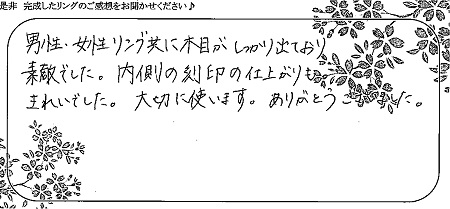 是非 完成したリングのご感想をお聞かせください♪
男性・女性リング共に木目がしっかり出ており
素敵でした。内側の刻印の仕上がりも
きれいでした。大切に使います。ありがとうございました。